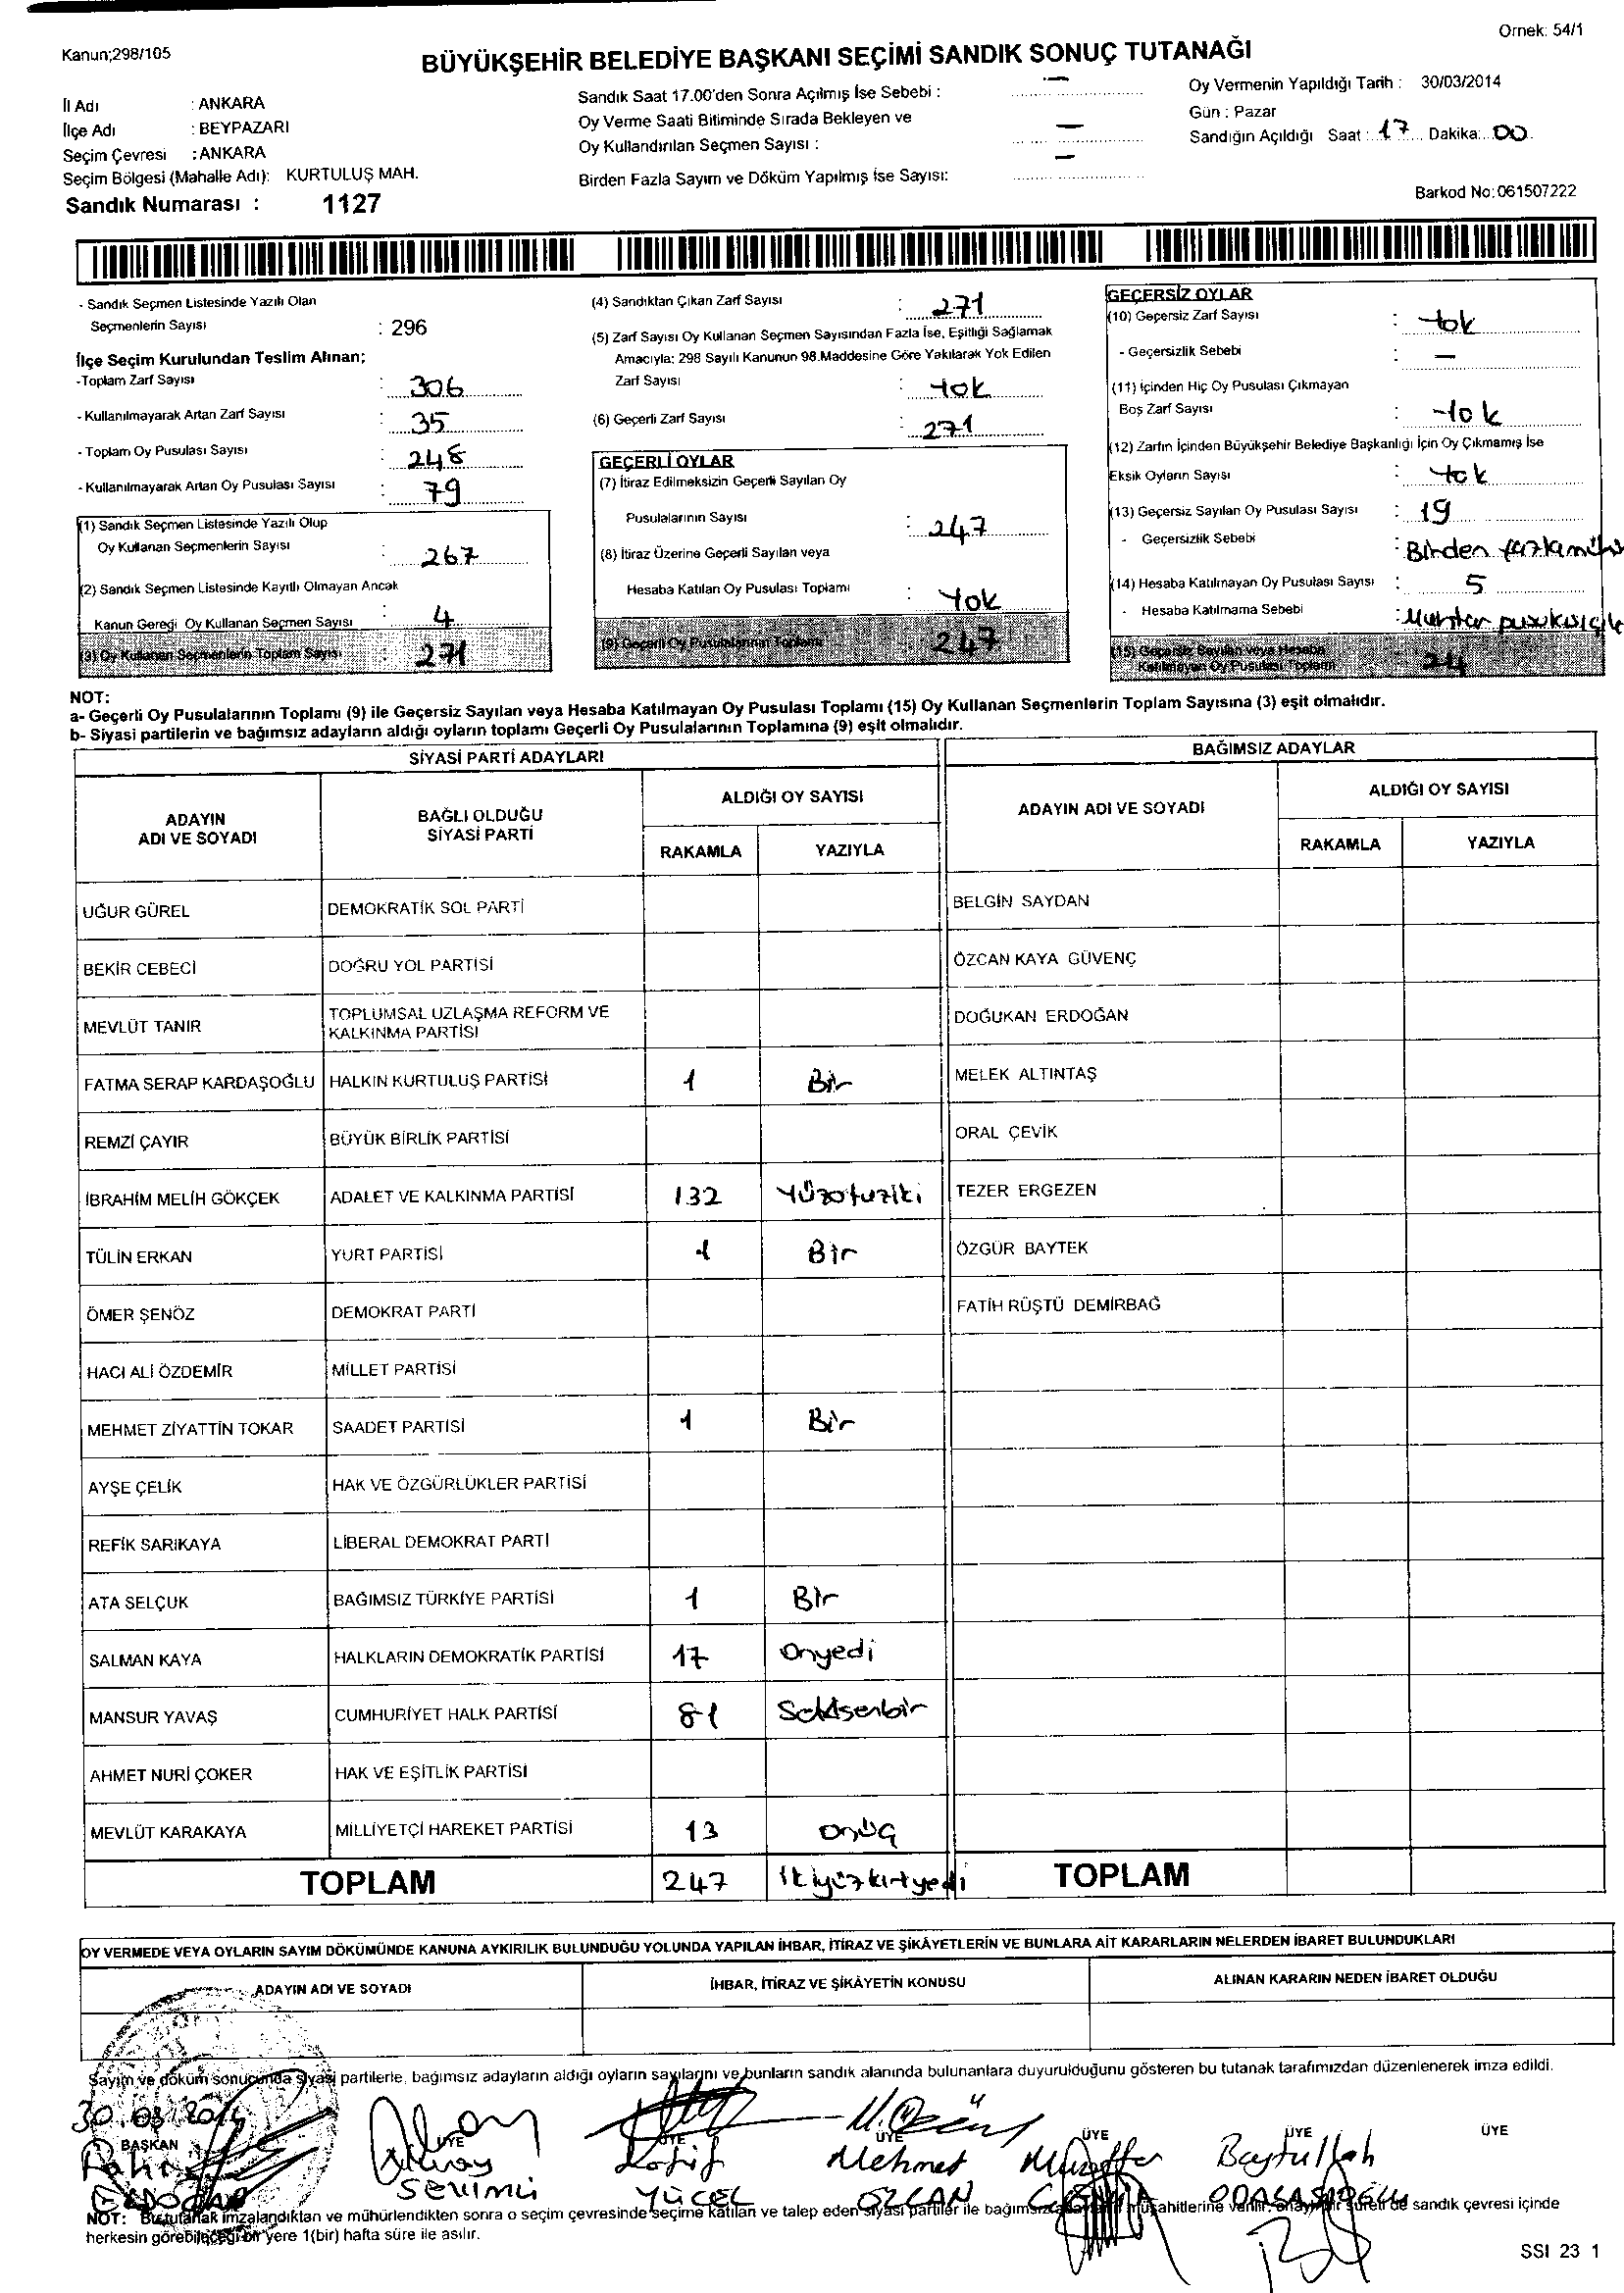 Örnek: 54/1
Kanun;298/105
BÜYÜKŞEHİR BELEDİYE BAŞKANI SEÇİMİ SANDIK SONUÇ TUTANAĞI
İl Adı : ANKARA
İlçe Adı : BEYPAZARI
Seçim Çevresi : ANKARA
Seçim Bölgesi (Mahalle Adı): KURTULUŞ MAH.
Sandık Numarası : 1127
Sandık Saat 17.00'den Sonra Açılmış İse Sebebi : —
Oy Verme Saati Bitiminde Sırada Bekleyen ve
Oy Kullandırılan Seçmen Sayısı : —
Birden Fazla Sayım ve Döküm Yapılmış İse Sayısı: —
Oy Vermenin Yapıldığı Tarih : 30/03/2014
Gün : Pazar
Sandığın Açıldığı Saat : 17 Dakika: 00
Barkod No: 061507222
- Sandık Seçmen Listesinde Yazılı Olan
Seçmenlerin Sayısı : 296
İlçe Seçim Kurulundan Teslim Alınan;
-Toplam Zarf Sayısı : 306
- Kullanılmayarak Artan Zarf Sayısı : 35
- Toplam Oy Pusulası Sayısı : 248
- Kullanılmayarak Artan Oy Pusulası Sayısı : 79
(1) Sandık Seçmen Listesinde Yazılı Olup
Oy Kullanan Seçmenlerin Sayısı : 267
(2) Sandık Seçmen Listesinde Kayıtlı Olmayan Ancak
Kanun Gereği Oy Kullanan Seçmen Sayısı : 4
(3) Oy Kullanan Seçmenlerin Toplam Sayısı : 271
(4) Sandıktan Çıkan Zarf Sayısı : 271
(5) Zarf Sayısı Oy Kullanan Seçmen Sayısından Fazla İse, Eşitliği Sağlamak
Amacıyla; 298 Sayılı Kanunun 98.Maddesine Göre Yakılarak Yok Edilen
Zarf Sayısı : Yok
(6) Geçerli Zarf Sayısı : 271
GEÇERLİ OYLAR
(7) İtiraz Edilmeksizin Geçerli Sayılan Oy
Pusulalarının Sayısı : 247
(8) İtiraz Üzerine Geçerli Sayılan veya
Hesaba Katılan Oy Pusulası Toplamı : Yok
(9) Geçerli Oy Pusulalarının Toplamı : 247
GEÇERSİZ OYLAR
(10) Geçersiz Zarf Sayısı : Yok
- Geçersizlik Sebebi : —
(11) İçinden Hiç Oy Pusulası Çıkmayan
Boş Zarf Sayısı : Yok
(12) Zarfın İçinden Büyükşehir Belediye Başkanlığı İçin Oy Çıkmamış İse
Eksik Oyların Sayısı : Yok
(13) Geçersiz Sayılan Oy Pusulası Sayısı : 19
- Geçersizlik Sebebi : Birden fazla
(14) Hesaba Katılmayan Oy Pusulası Sayısı : 5
- Hesaba Katılmama Sebebi : Muhtar
(15) Geçersiz Sayılan veya Hesaba
Katılmayan Oy Pusulası Toplamı : 24
NOT:
a- Geçerli Oy Pusulalarının Toplamı (9) ile Geçersiz Sayılan veya Hesaba Katılmayan Oy Pusulası Toplamı (15) Oy Kullanan Seçmenlerin Toplam Sayısına (3) eşit olmalıdır.
b- Siyasi partilerin ve bağımsız adayların aldığı oyların toplamı Geçerli Oy Pusulalarının Toplamına (9) eşit olmalıdır.
SİYASİ PARTİ ADAYLARI
ADAYIN ADI VE SOYADI BAĞLI OLDUĞU SİYASİ PARTİ ALDIĞI OY SAYISI
RAKAMLA YAZIYLA
UĞUR GÜREL DEMOKRATİK SOL PARTİ
BEKİR CEBECİ DOĞRU YOL PARTİSİ
MEVLÜT TANIR TOPLUMSAL UZLAŞMA REFORM VE
KALKINMA PARTİSİ
FATMA SERAP KARDAŞOĞLU HALKIN KURTULUŞ PARTİSİ 1 Bir
REMZİ ÇAYIR BÜYÜK BİRLİK PARTİSİ
İBRAHİM MELİH GÖKÇEK ADALET VE KALKINMA PARTİSİ 132 Yüzotuziki
TÜLİN ERKAN YURT PARTİSİ 1 Bir
ÖMER ŞENÖZ DEMOKRAT PARTİ
HACI ALİ ÖZDEMİR MİLLET PARTİSİ
MEHMET ZİYATTİN TOKAR SAADET PARTİSİ 1 Bir
AYŞE ÇELİK HAK VE ÖZGÜRLÜKLER PARTİSİ
REFİK SARIKAYA LİBERAL DEMOKRAT PARTİ
ATA SELÇUK BAĞIMSIZ TÜRKİYE PARTİSİ 1 Bir
SALMAN KAYA HALKLARIN DEMOKRATİK PARTİSİ 17 Onyedi
MANSUR YAVAŞ CUMHURİYET HALK PARTİSİ 81 Seksenbir
AHMET NURİ ÇOKER HAK VE EŞİTLİK PARTİSİ
MEVLÜT KARAKAYA MİLLİYETÇİ HAREKET PARTİSİ 13 onüç
TOPLAM 247 ikiyüzkırkyedi
BAĞIMSIZ ADAYLAR
ADAYIN ADI VE SOYADI ALDIĞI OY SAYISI
RAKAMLA YAZIYLA
BELGİN SAYDAN
ÖZCAN KAYA GÜVENÇ
DOĞUKAN ERDOĞAN
MELEK ALTINTAŞ
ORAL ÇEVİK
TEZER ERGEZEN
ÖZGÜR BAYTEK
FATİH RÜŞTÜ DEMİRBAĞ
TOPLAM
OY VERMEDE VEYA OYLARIN SAYIM DÖKÜMÜNDE KANUNA AYKIRILIK BULUNDUĞU YOLUNDA YAPILAN İHBAR, İTİRAZ VE ŞİKÂYETLERİN VE BUNLARA AİT KARARLARIN NELERDEN İBARET BULUNDUKLARI
ADAYIN ADI VE SOYADI İHBAR, İTİRAZ VE ŞİKÂYETİN KONUSU ALINAN KARARIN NEDEN İBARET OLDUĞU
Sayım ve döküm sonucunda siyasi partilerle, bağımsız adayların aldığı oyların sayılarını ve bunların sandık alanında bulunanlara duyurulduğunu gösteren bu tutanak tarafımızdan düzenlenerek imza edildi.
30.03.2014
BAŞKAN ÜYE ÜYE ÜYE ÜYE ÜYE ÜYE
Mehmet Muzaffer Baytullah
ERDOĞAN SEVİMLİ YÜCEL ÖZCAN
NOT: Bu tutanak imzalandıktan ve mühürlendikten sonra o seçim çevresinde seçime katılan ve talep eden siyasi partiler ile bağımsız müşahitlerine verilir, onaylı bir sureti de sandık çevresi içinde
herkesin görebileceği bir yere 1(bir) hafta süre ile asılır.
SSI 23 1